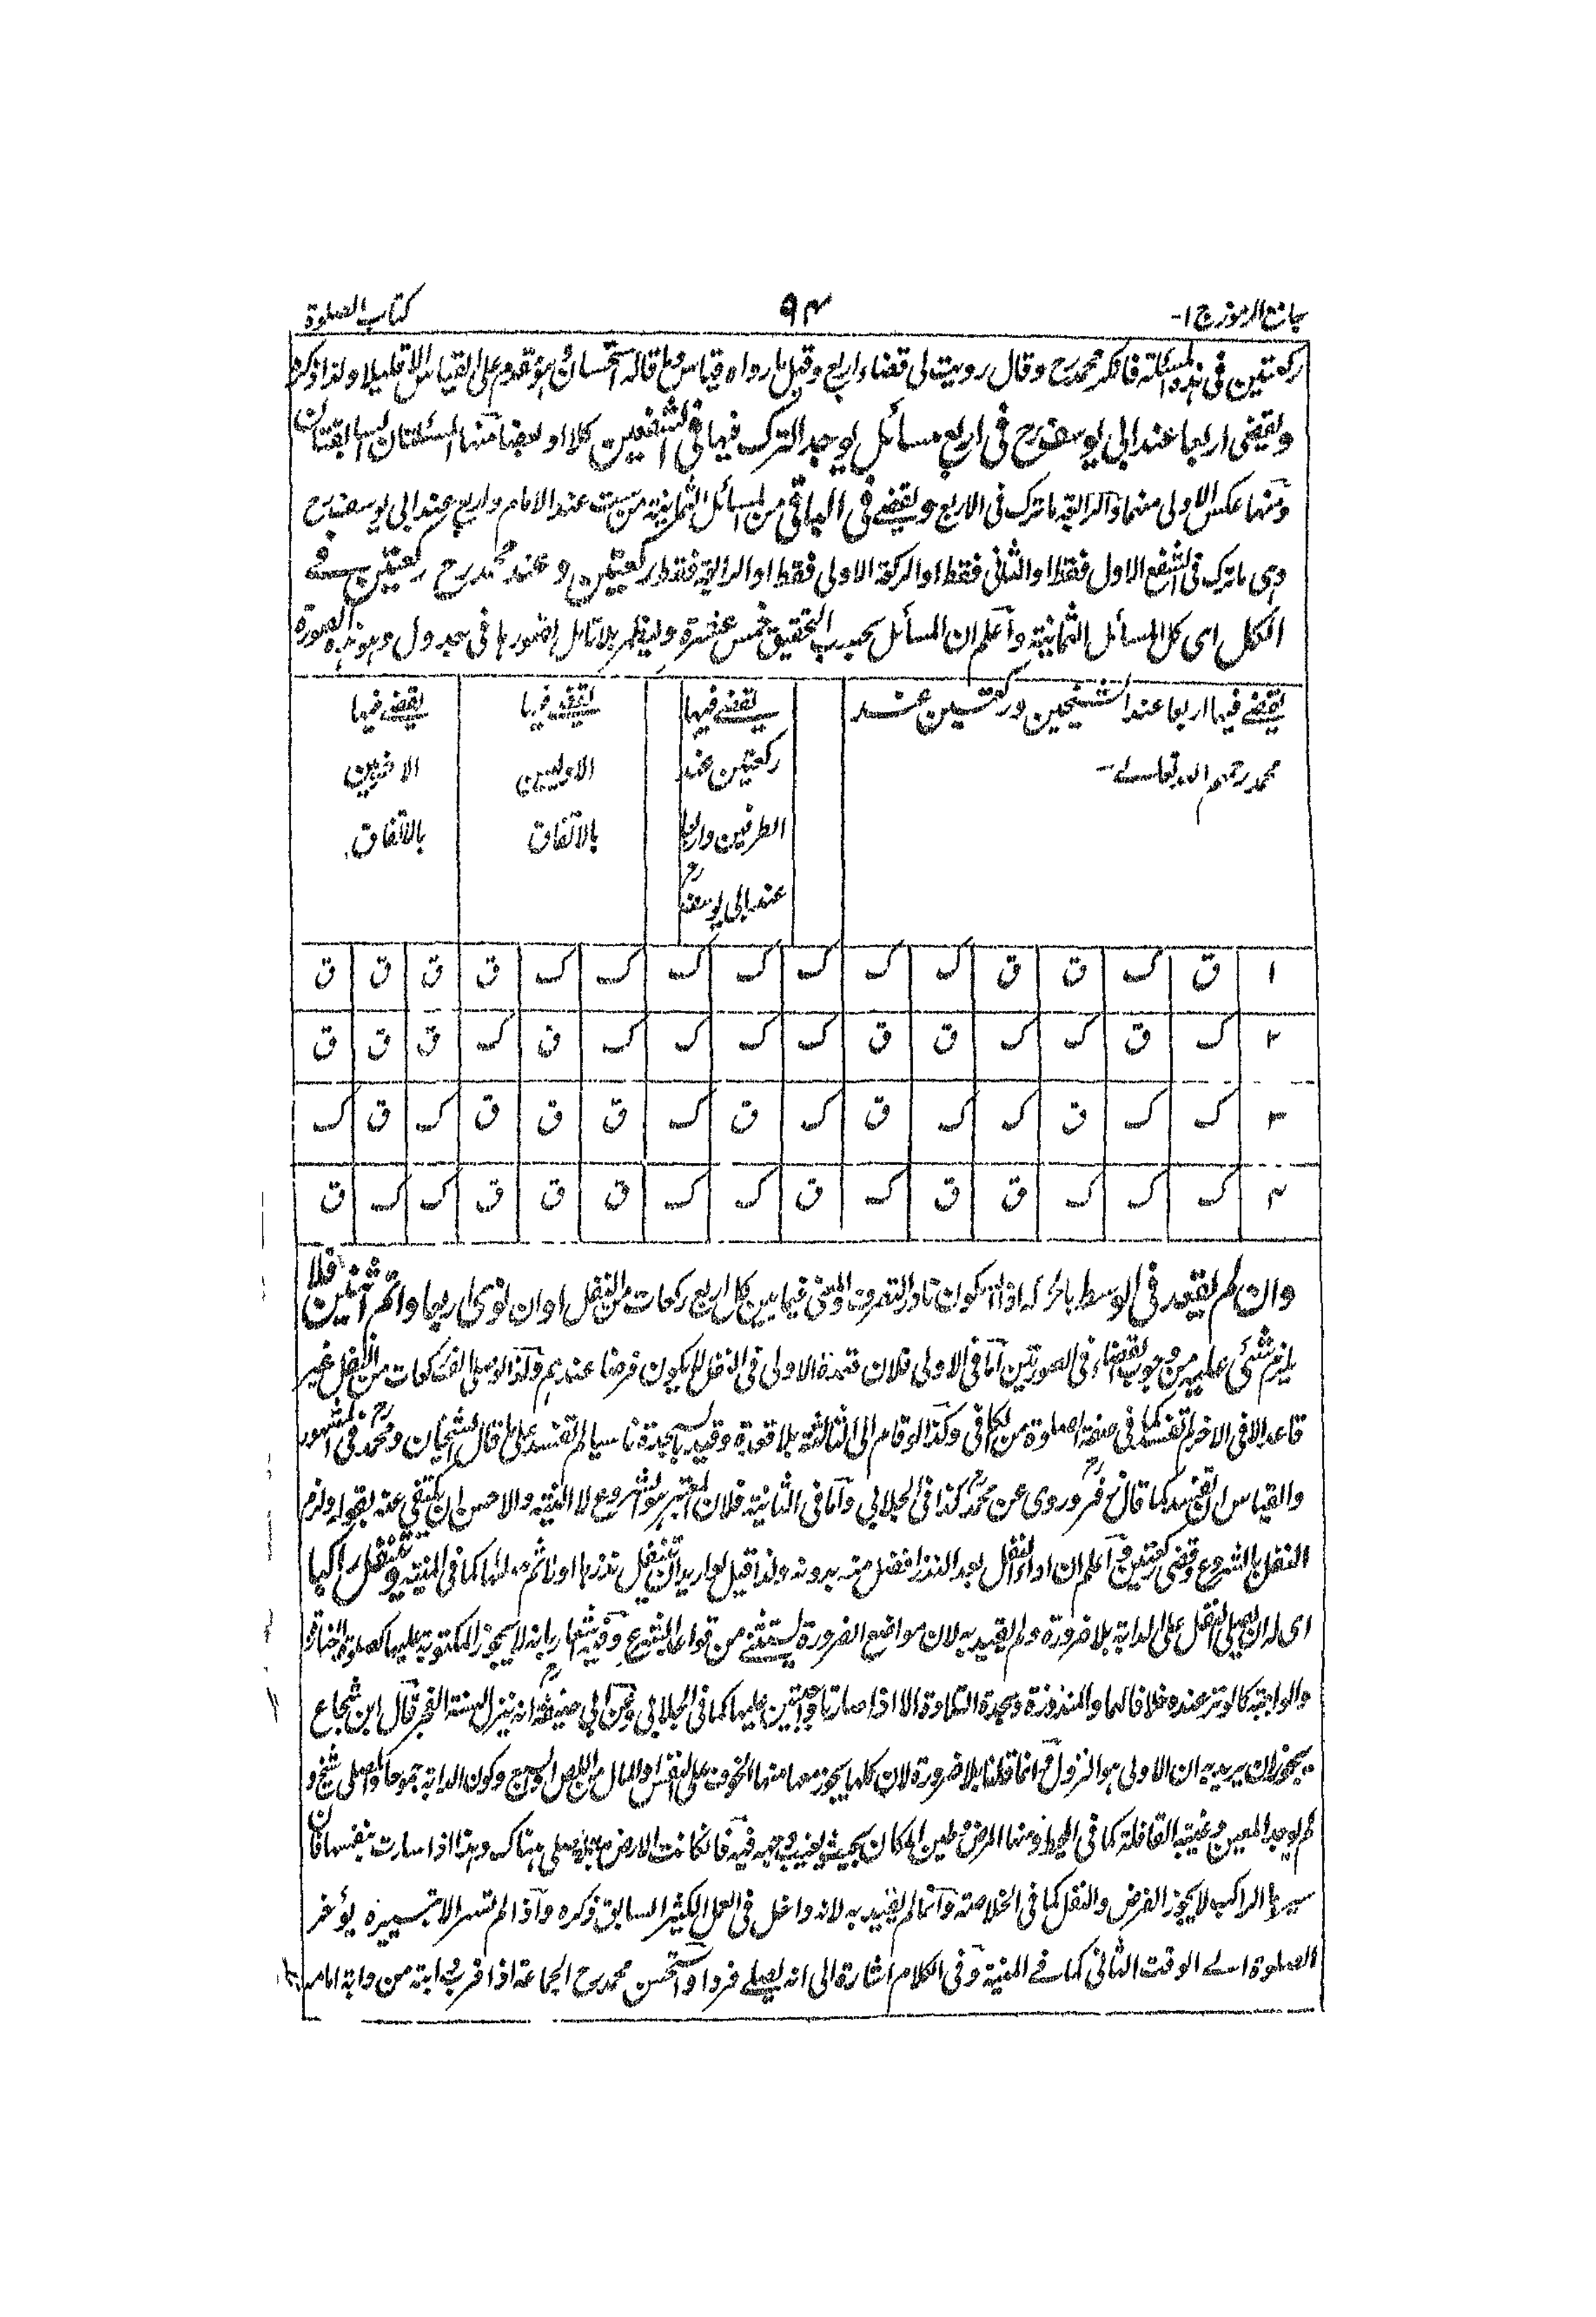 جامع الرموز ج ۱-
۹۴
كتاب الصلوة
ركعتين فى هذه المسئلة فانكر محمد رح وقال رويت لى قضاء اربع وقيل ما رواه قياس وما قاله استحسان هو مقدم على القياس الا قليلا ولذا ذكر
ويقضى اربعا عند ابى يوسف رح فى اربع مسائل يوجد الترك فيها فى الشفعين كلا او بعضا منها المسئلتان السابقتان
ومنها عكس الاولى منهما والرابعة ما ترك فى الاربع ويقضے فى الباقى من المسائل الثمانية من ست عند الامام واربع عند ابى يوسف رح
وهى ما ترك فى الشفع الاول فقط او الثانى فقط او الركعة الاولى فقط او الرابعة فقط ركعتين و عند محمد رح ركعتين فے
الكل اى كل المسائل الثمانية واعلم ان المسائل بحسب التحقيق خمس عشرة ولينظر بلا تامل لتصورها فى جدول وهو هذه الصورة
يقضے فيها اربعا عند الشيخين وركعتين عند
محمد رحمهم الله تعالے-
يقضے فيها
ركعتين عند
الطرفين واربعا
عند ابى يوسف رح
يقضے فيها
الاوليين
بالاتفاق
يقضے فيها
الاخريين
بالاتفاق
۱ ق ك ق ق ك ك ك ك ك ك ك ق ق ق ق
۲ ك ق ك ك ق ق ك ك ك ك ق ك ق ق ق
۳ ك ك ق ك ك ق ك ق ك ق ق ق ك ق ك
۴ ك ك ك ق ق ك ق ك ك ق ق ق ك ك ق
وان لم يقعد فى الوسط بالحركة اذ النكون نادر التعرف والمعنى فيما بين كل اربع ركعات من النفل او ان نوى اربعا واتم اثنين فلا
يلزم شئى عليه من وجوب القضاء فى الصورتين اما فى الاولى فلان قعدة الاولى فى النفل لا يكون فرضا عندهم وكذا لو صلى الف ركعات من النفل غير
قاعد الا فى الاخر لم تفسد كما فى صفة الصلوة من الكافى وكذا لو قام الى الثالثة بلا قعدة وقيد بسجدة ناسيا لم تفسد على ما قال الشيخان ومحمد رح فى المشهور
والقياس ان تفسد كما قال زفر وروى عن محمد رح كذا فى الجلابى واما فى الثانية فلان المعتبر هو الشروع لا النية والاحسن ان يكتفى عنه بقوله ولزم
النفل بالشروع وقضى ركعتين واعلم ان اداء النفل بعد النذر افضل منه بدونه ولذا قيل لو اريد ان يتنفل نذرها اولا ثم صلاها كما فى المنية ويتنفل راكبا
اى له ان يصلى النفل على الدابة بلا ضرورة ولم يقيد به لان مواضع الضرورة يستثنے من قواعد الشرع وفيه اشعار بانه لا يجوز المكتوبة عليها كصلوة الجنازة
والواجبة كالوتر عنده خلافا لهما والمنذورة وسجدة التلاوة الا اذا صارتا واجبتين عليها كما فى الجلابى وعن ابى حنيفة رح انه ينزل لسنة الفجر قال ابن شجاع
يجوز ان يريد به ان الاولى هو النزول وانما قلنا بلا ضرورة لان كلها يجوز معها منها الخوف على النفس او المال من اللص او السبع وكون الدابة جموحا والمصلى شيخا و
لم يوجد المعين وغيبة القافلة كما فى المحيط ومنها المرض وطين المكان بحيث يغيب وجهه فيه فان كانت الارض مبتلة يصلى هناك وهذا اذا سارت بنفسها فان
سيرها الراكب لا يجوز الفرض والنفل كما فى الخلاصة وانما لم يقيد به لانه داخل فى العمل الكثير السابق ذكره واذا لم تسر الا بتسييره يؤخر
الصلوة الے الوقت الثانى كما فے المنية وفى الكلام اشارة الى انه يصلے فردا واستحسن محمد رح الجماعة اذا قرب دابته من دابة امامه